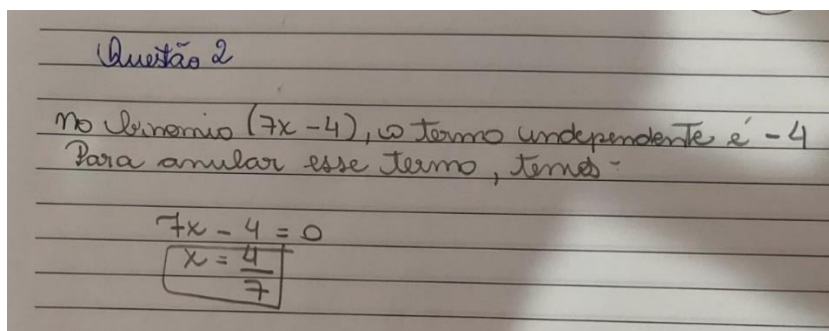 Questão 2
No binomio (7x - 4), o termo independente é - 4
Para anular esse termo, temos:
7x - 4 = 0
x = 4/7